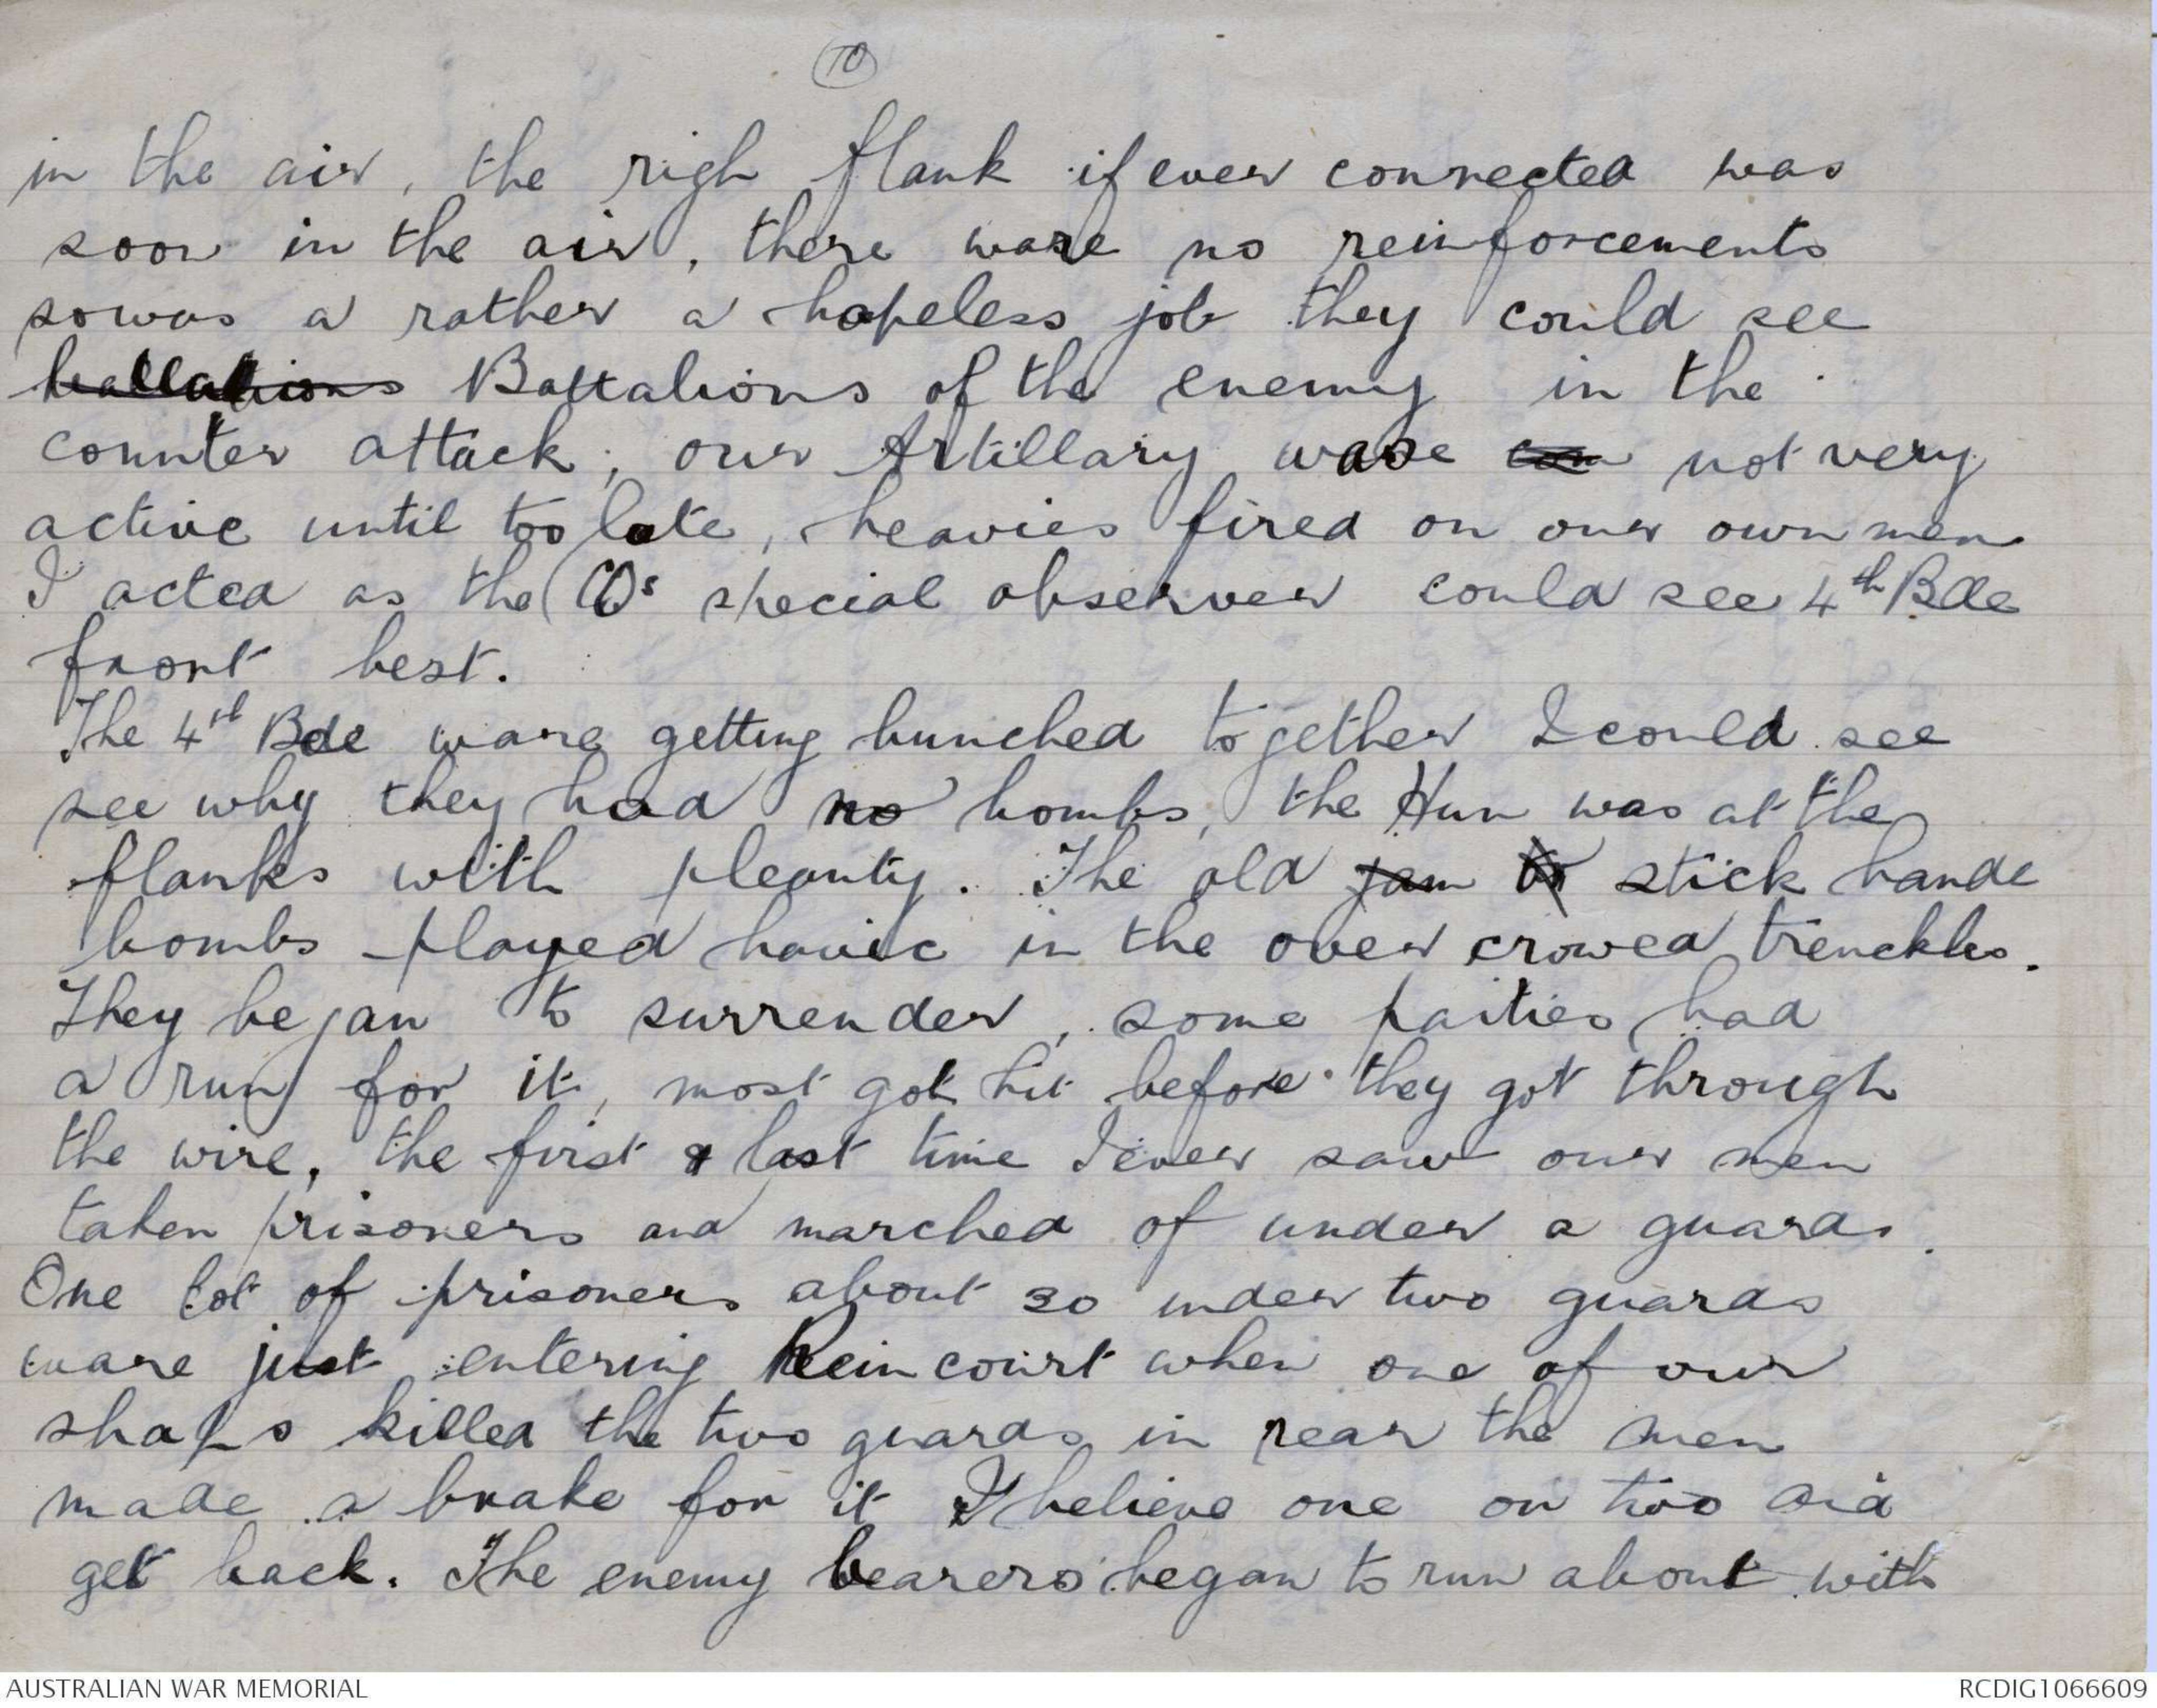 10
in the air, the righ flank if ever connected was
soon in the air, there ware no reinforcements
so was a rather a hopeless job they could see
battalions Battalions of the enemy in the
counter attack; our Artillary ware con not very
active until too late, heavies fired on our own men
I acted as the COs special observer could see 4th Bde
front best.
The 4th Bde ware getting bunched together I could see
see why they had no bombs, the Hun was at the
flanks with pleanty. The old jam stick hande
bombs played havic in the over crowed trenches.
They began to surrender, some parties had
a run for it, most got hit before they got through
the wire, the first & last time I ever saw our men
taken prisoners and marched of under a guard.
One lot of prisoners about 30 under two guards
ware just entering Reincourt when one of our
shaps killed the two guards in rear the men
made a brake for it I believe one or two did
get back. The enemy bearers began to run about with
AUSTRALIAN WAR MEMORIAL
RCDIG1066609